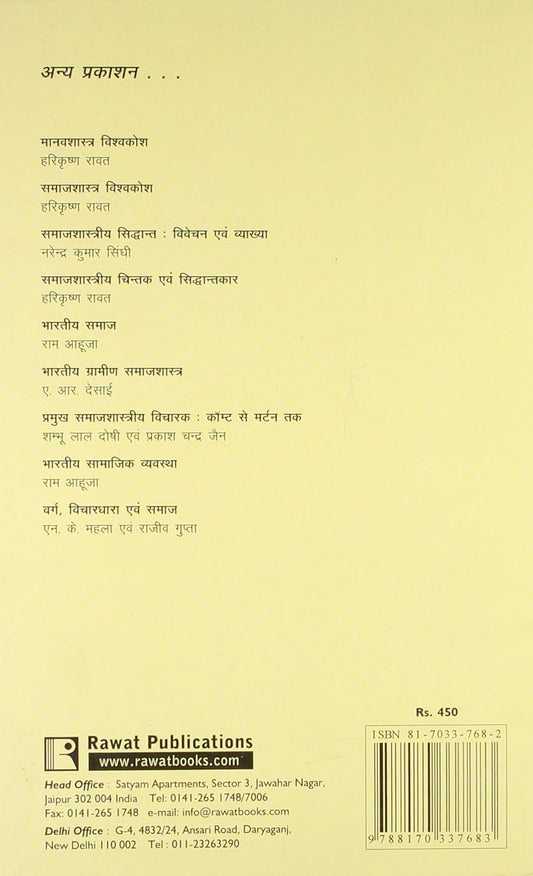 अन्य प्रकाशन . . .
मानवशास्त्र विश्वकोश
हरिकृष्ण रावत
समाजशास्त्र विश्वकोश
हरिकृष्ण रावत
समाजशास्त्रीय सिद्धान्त : विवेचन एवं व्याख्या
नरेन्द्र कुमार सिंघी
समाजशास्त्रीय चिन्तक एवं सिद्धान्तकार
हरिकृष्ण रावत
भारतीय समाज
राम आहूजा
भारतीय ग्रामीण समाजशास्त्र
ए. आर. देसाई
प्रमुख समाजशास्त्रीय विचारक : कॉम्ट से मर्टन तक
शम्भू लाल दोषी एवं प्रकाश चन्द्र जैन
भारतीय सामाजिक व्यवस्था
राम आहूजा
वर्ग, विचारधारा एवं समाज
एन. के. महला एवं राजीव गुप्ता
Rs. 450
ISBN 81-7033-768-2
9 788170 337683
Rawat Publications
www.rawatbooks.com
Head Office : Satyam Apartments, Sector 3, Jawahar Nagar,
Jaipur 302 004 India Tel: 0141-265 1748/7006
Fax: 0141-265 1748 e-mail: info@rawatbooks.com
Delhi Office : G-4, 4832/24, Ansari Road, Daryaganj,
New Delhi 110 002 Tel : 011-23263290